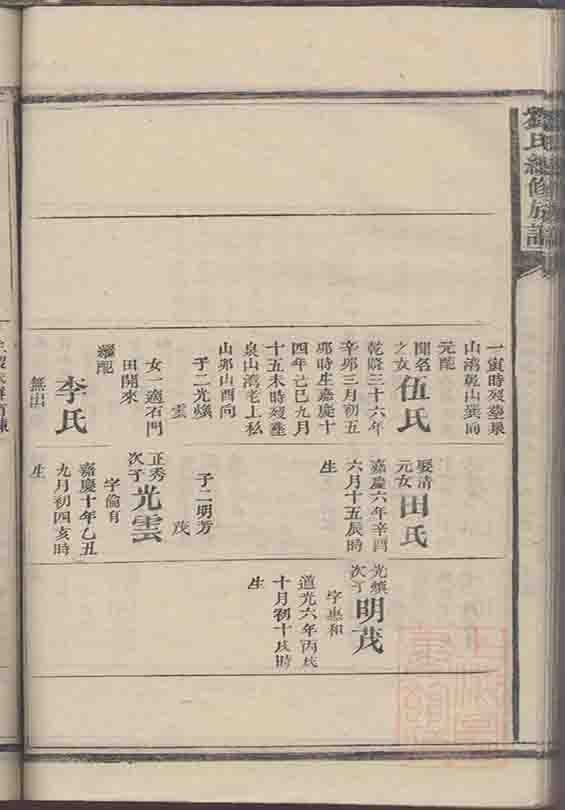 劉氏總修族譜
一寅時歿塟泉
山灣乾山巽向
元配
聞名
之女
伍氏
乾隆三十六年
辛卯三月初五
卯時生嘉慶十
四年己巳九月
十五未時歿塟
泉山灣老上私
山卯山酉向
子二光
雲
女一適石門
田開來
繼配
李氏
無出
娶清
元女
田氏
嘉慶六年辛酉
六月十五辰時
生
子二明芳
茂
正秀
次子
光雲
字倫有
嘉慶十年乙丑
九月初四亥時
生
光
次子
明茂
字惠和
道光六年丙戌
十月初十戌時
生